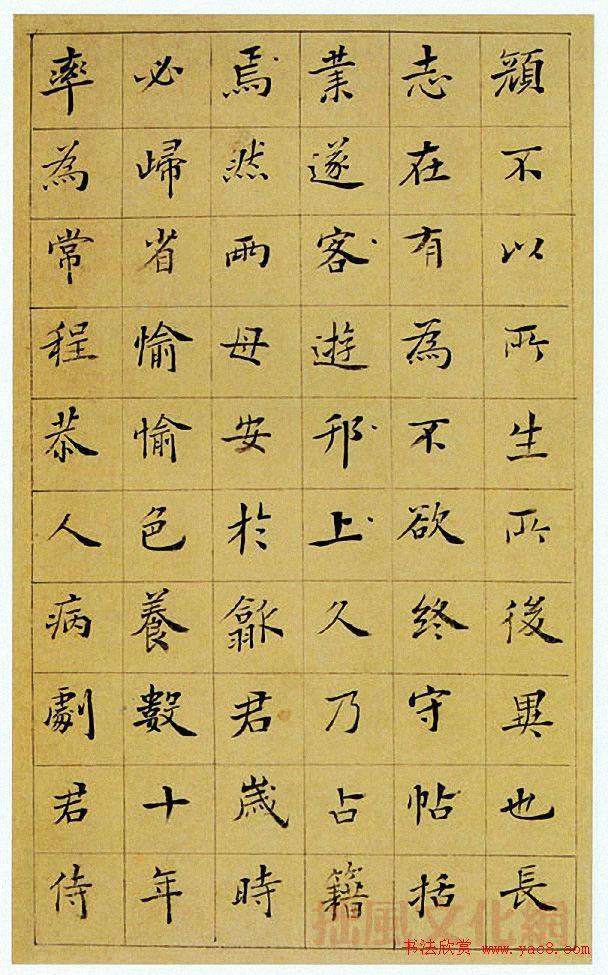 不以所生所後異也長
志在有為不欲終守帖括
業遂客遊邗上久乃占籍
焉然兩母安於歙君歲時
必歸省愉愉色養數十年
率為常程恭人病劇君侍
拙風文化網
书法欣赏 www.yac8.com